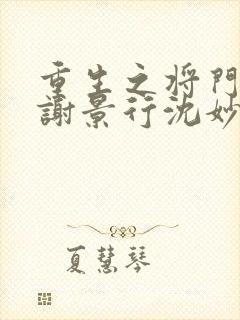 重生之将門
謝景行沈妙
夏慧琴